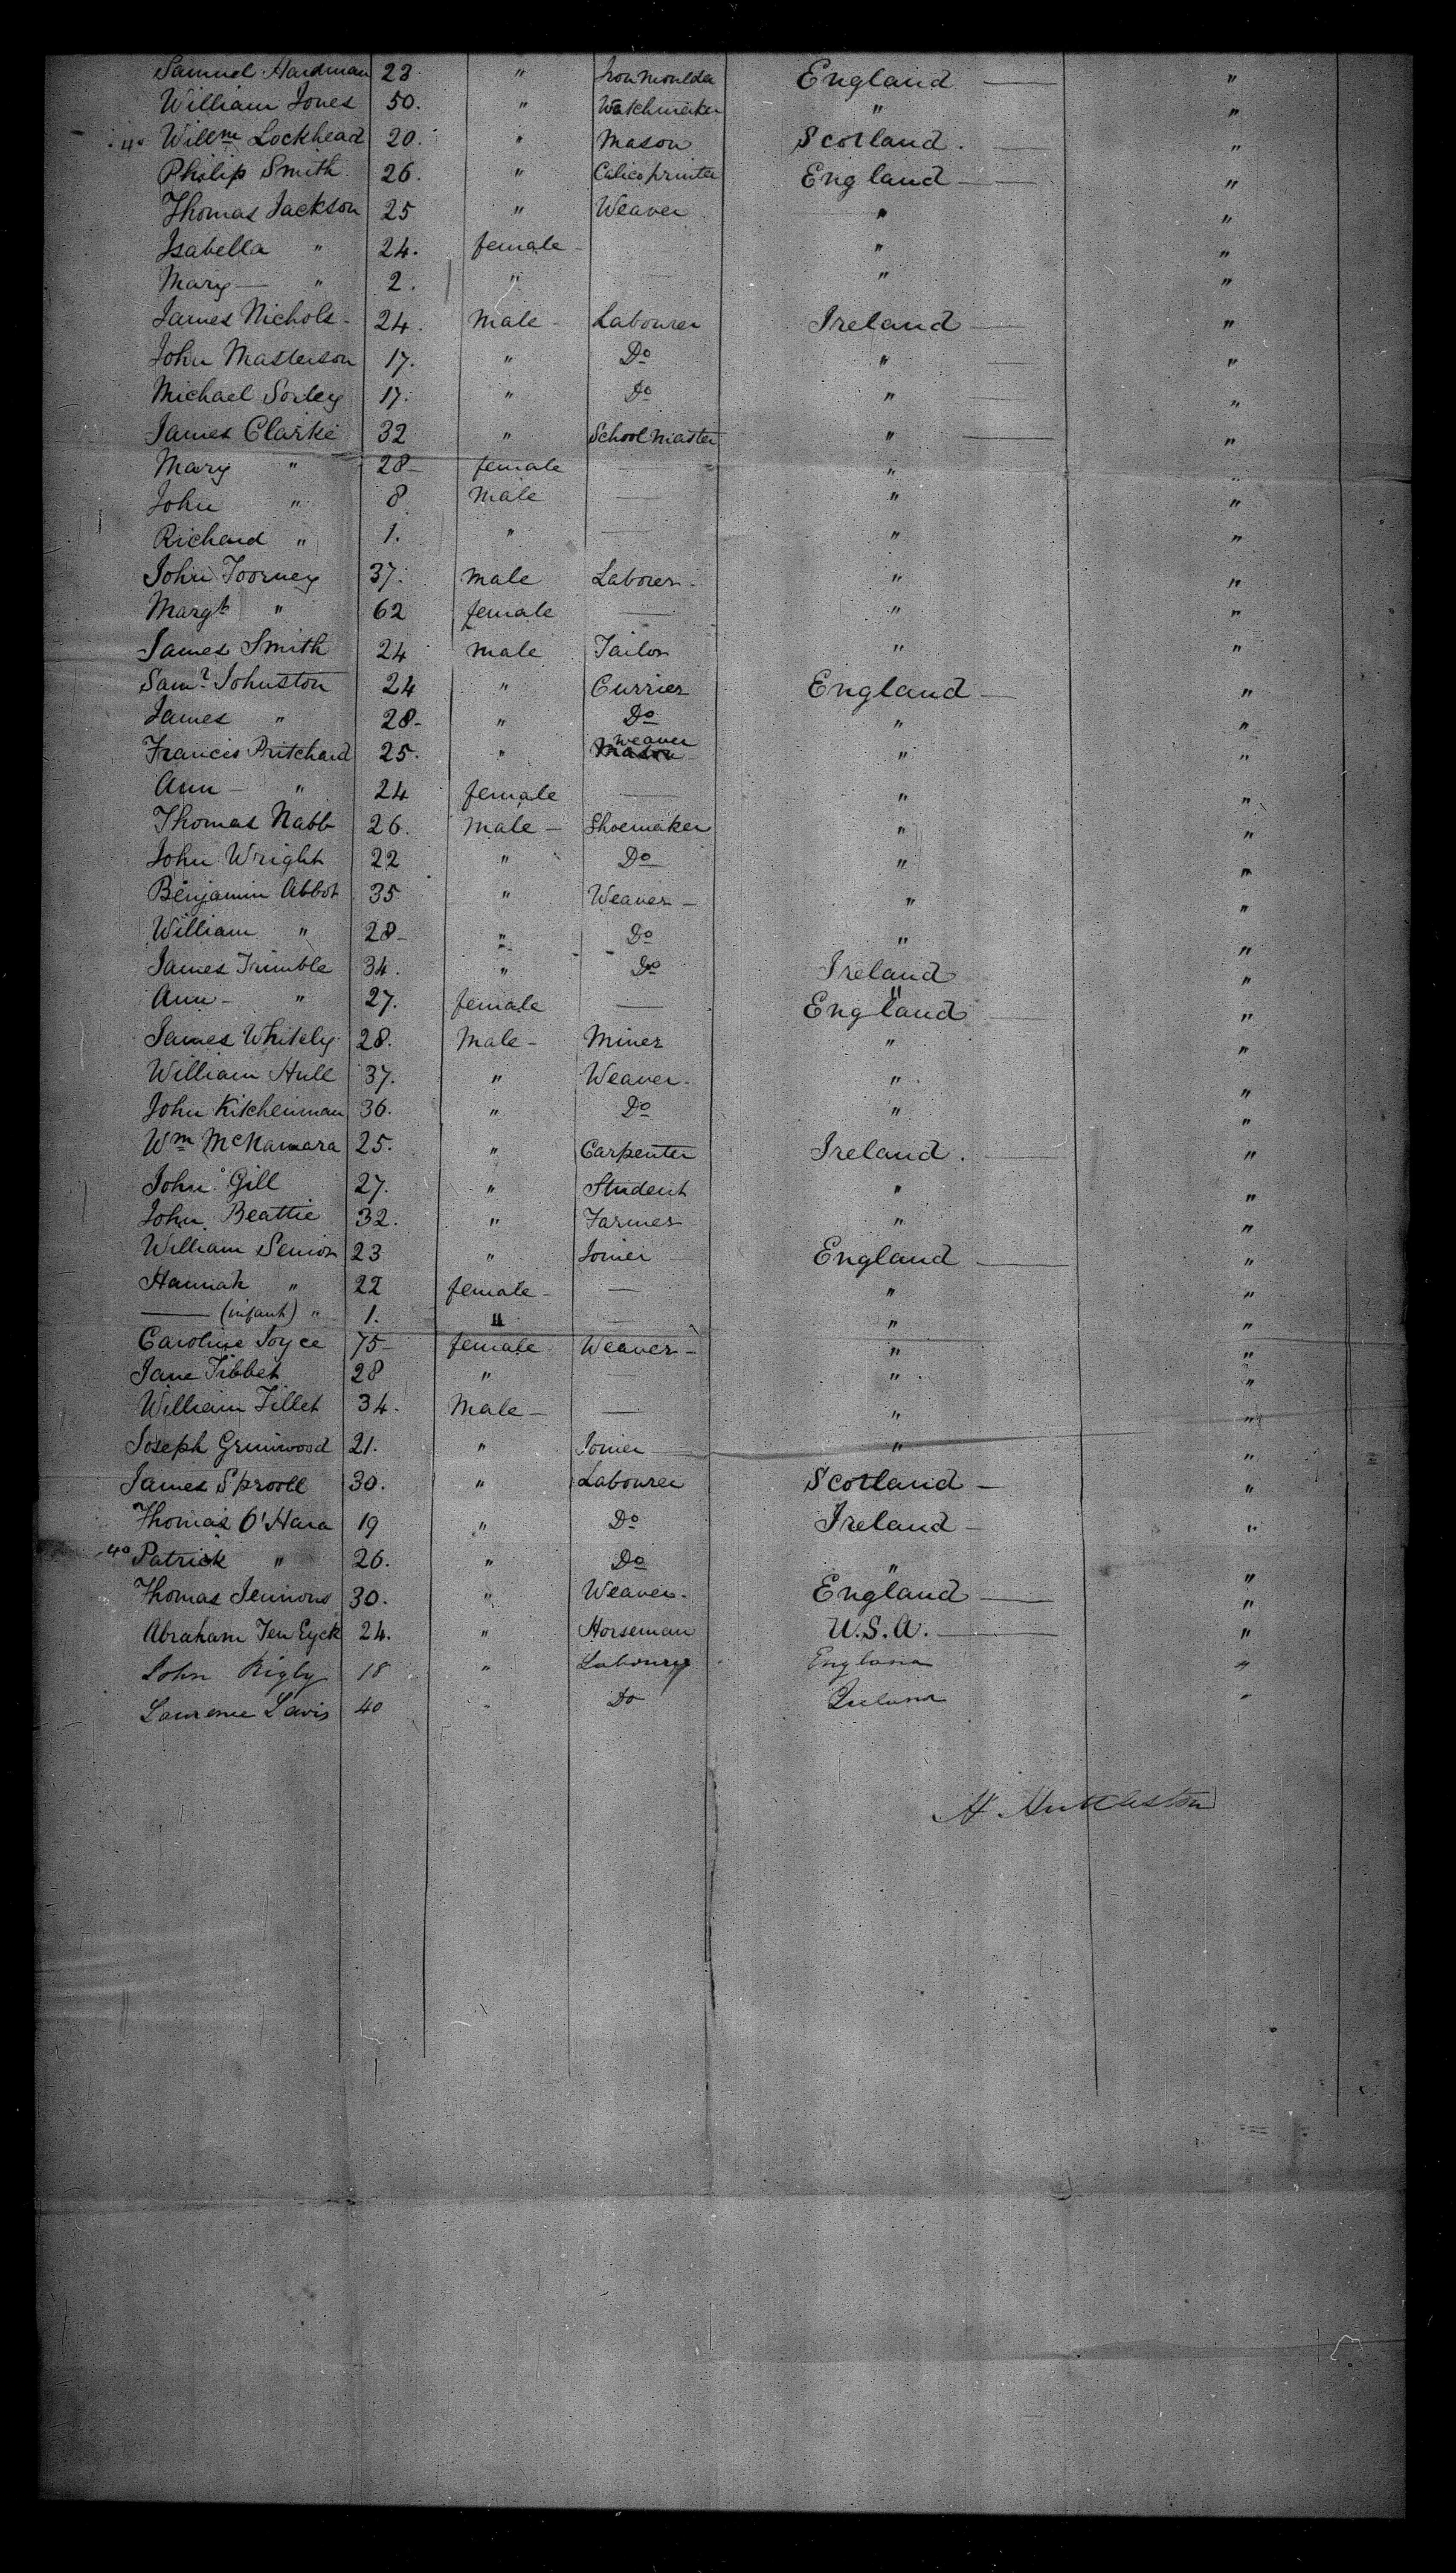 Samuel Hardman 23 " Iron Moulder England — "
William Jones 50. " Watchmaker " "
40 Willm Lockhead 20. " Mason Scotland. — "
Philip Smith 26. " Calico printer England — "
Thomas Jackson 25 " Weaver " "
Isabella " 24. female - " "
Mary — " 2. " — " "
James Nichols - 24. Male - Labourer Ireland — "
John Masterson 17. " Do " — "
Michael Sorley 17. " Do " — "
James Clarke 32 " School Master " — "
Mary " 28 - female " "
John " 8 Male — " "
Richard " 1. " — " "
John Toorney 37. Male Laborer - " "
Margt " 62 female — " "
James Smith 24 Male Tailor " "
Saml Johnston 24 " Currier England — "
James " 28 - " Do " "
weaver
Francis Pritchard 25. " Mason " "
Ann - " 24 female — " "
Thomas Nabb 26. Male - Shoemaker " "
John Wright 22 " Do " "
Benjamin Abbot 35 " Weaver - " "
William " 28 - " Do " "
James Trimble 34. " Do Ireland "
Ann - " 27. female — England — "
James Whitely 28. Male - Miner " "
William Hull 37. " Weaver. " "
John Kitchenman 36. " Do " "
Wm McNamara 25. " Carpenter Ireland. — "
John Gill 27. " Student " "
John Beattie 32. " Farmer " "
William Senior 23 " Joiner England — "
Hannah " 22 female - — " "
— (infant) " 1. " — " "
Caroline Joyce 75 - female Weaver - " "
Jane Tibbet 28 " — " "
William Tillet 34. Male - — " "
Joseph Grimwood 21. " Joiner " "
James Sprooll 30. " Labourer Scotland - "
Thomas O'Hara 19 " Do Ireland - "
40 Patrick " 26. " Do " "
Thomas Jennons 30. " Weaver. England — "
Abraham Ten Eyck 24. " Horseman U.S.A. — "
John Rigby 18 " Labourer England "
Lawrence Lavis 40 " Do Ireland "